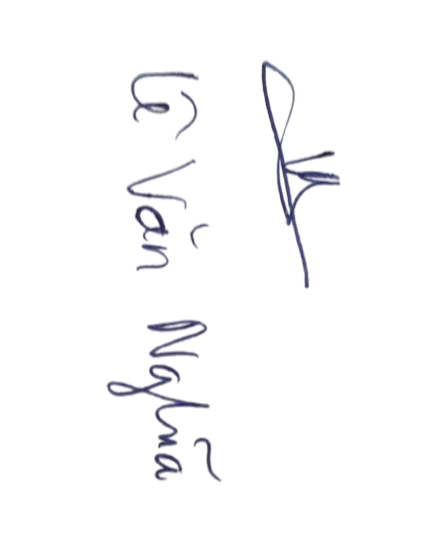 Lê Văn Nghĩa